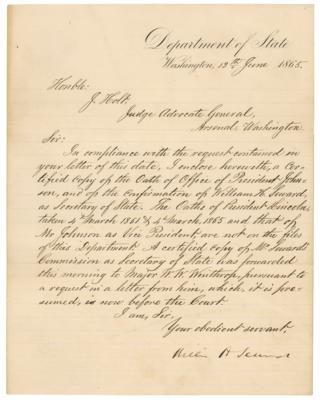 Department of State
Washington, 12th June 1865.
Honble:
J. Holt.
Judge Advocate General,
Arsenal, Washington
Sir:
In compliance with the request contained in
your letter of this date, I enclose herewith, a Cer-
tified Copy of the Oath of Office of President John-
son, and of the Confirmation of William H. Seward,
as Secretary of State. The Oaths of President Lincoln
taken 4th March 1861 & 4th March, 1865 and that of
Mr Johnson as Vice President, are not on the files
of this Department. A certified copy of Mr Seward's
Commission as Secretary of State was forwarded
this morning to Major W. W. Winthrop, pursuant to
a request in a letter from him, which, it is pre-
sumed, is now before the Court.
I am, Sir,
Your obedient servant,
William H Seward